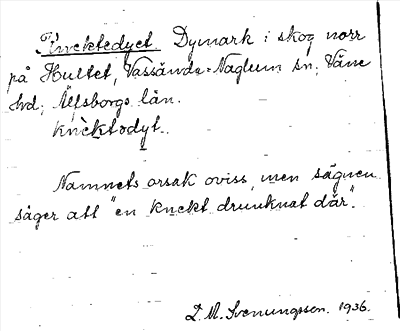 Knektedyet. Dymark i skog norr
på Hultet, Vassända-Naglum sn; Väne
hd; Älfsborgs län.
knèktodyt.
Namnets orsak oviss, men sägnen
säger att "en knekt drunknat där".
D. M. Svenungsson. 1936.